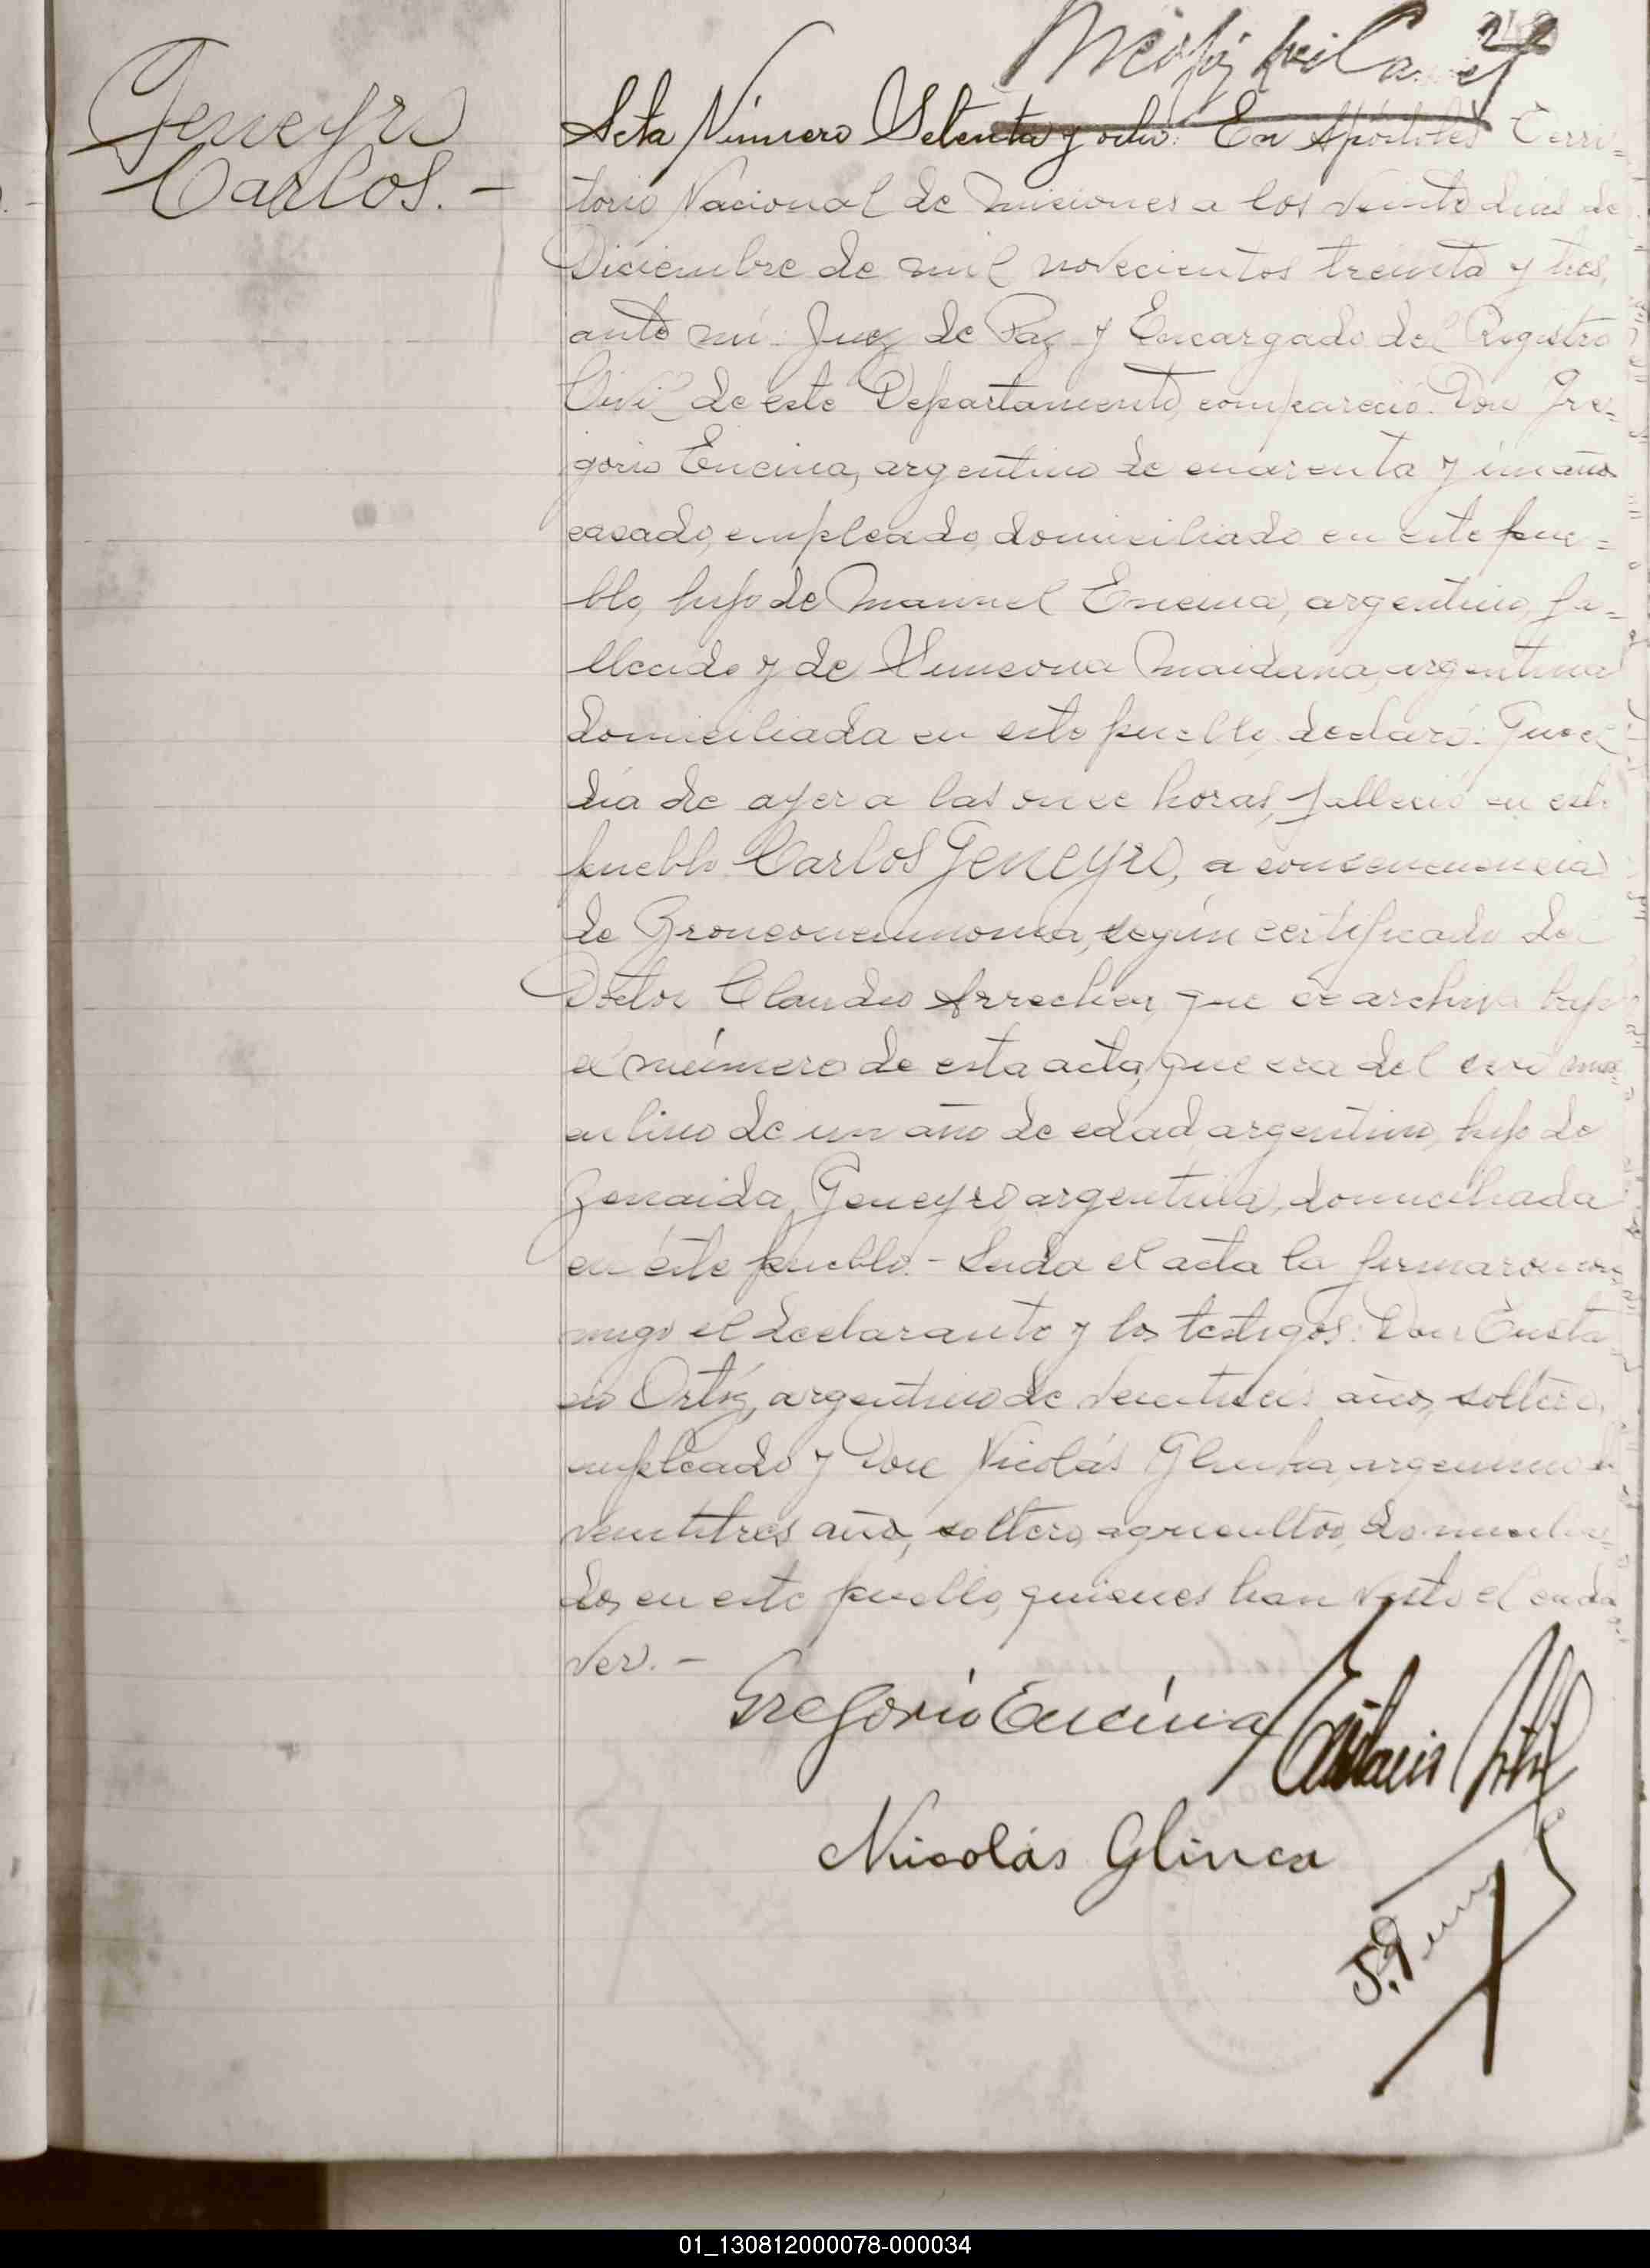 Geneyro
Carlos. -
Acta Número Setenta y ocho: En Apóstoles Terri=
torio Nacional de Misiones a los veinte dias de
Diciembre de mil novecientos treinta y tres,
ante mi: Juez de Paz y Encargado del Registro
Civil de este Departamento, compareció: Don Gre=
gorio Encina, argentino de cuarenta y un años
casado, empleado, domiciliado en este pue=
blo, hijo de Manuel Encina, argentino, fa=
llecido y de Simeona Maidana, argentina
domiciliada en este pueblo, declaró: Que el
día de ayer a las once horas, falleció en este
pueblo Carlos Geneyro, a consecuencia
de Bronconeumonia, según certificado del
Doctor Claudio Arrechea, que se archiva bajo
el número de esta acta, que era del sexo mas=
culino de un año de edad, argentino, hijo de
Zenaida Geneyro, argentina, domiciliada
en éste pueblo. - Leida el acta la firmaron con=
migo el declarante y los testigos: Don Eusta=
cio Ortíz, argentino de veintiseis años, soltero,
empleado y Don Nicolás Glinka, argentino de
veintitres años, soltero, agricultor, domicilia=
dos en este pueblo, quienes han visto el cada
ver. -
Gregorio Encina
Nicolás Glinca
01_130812000078-000034